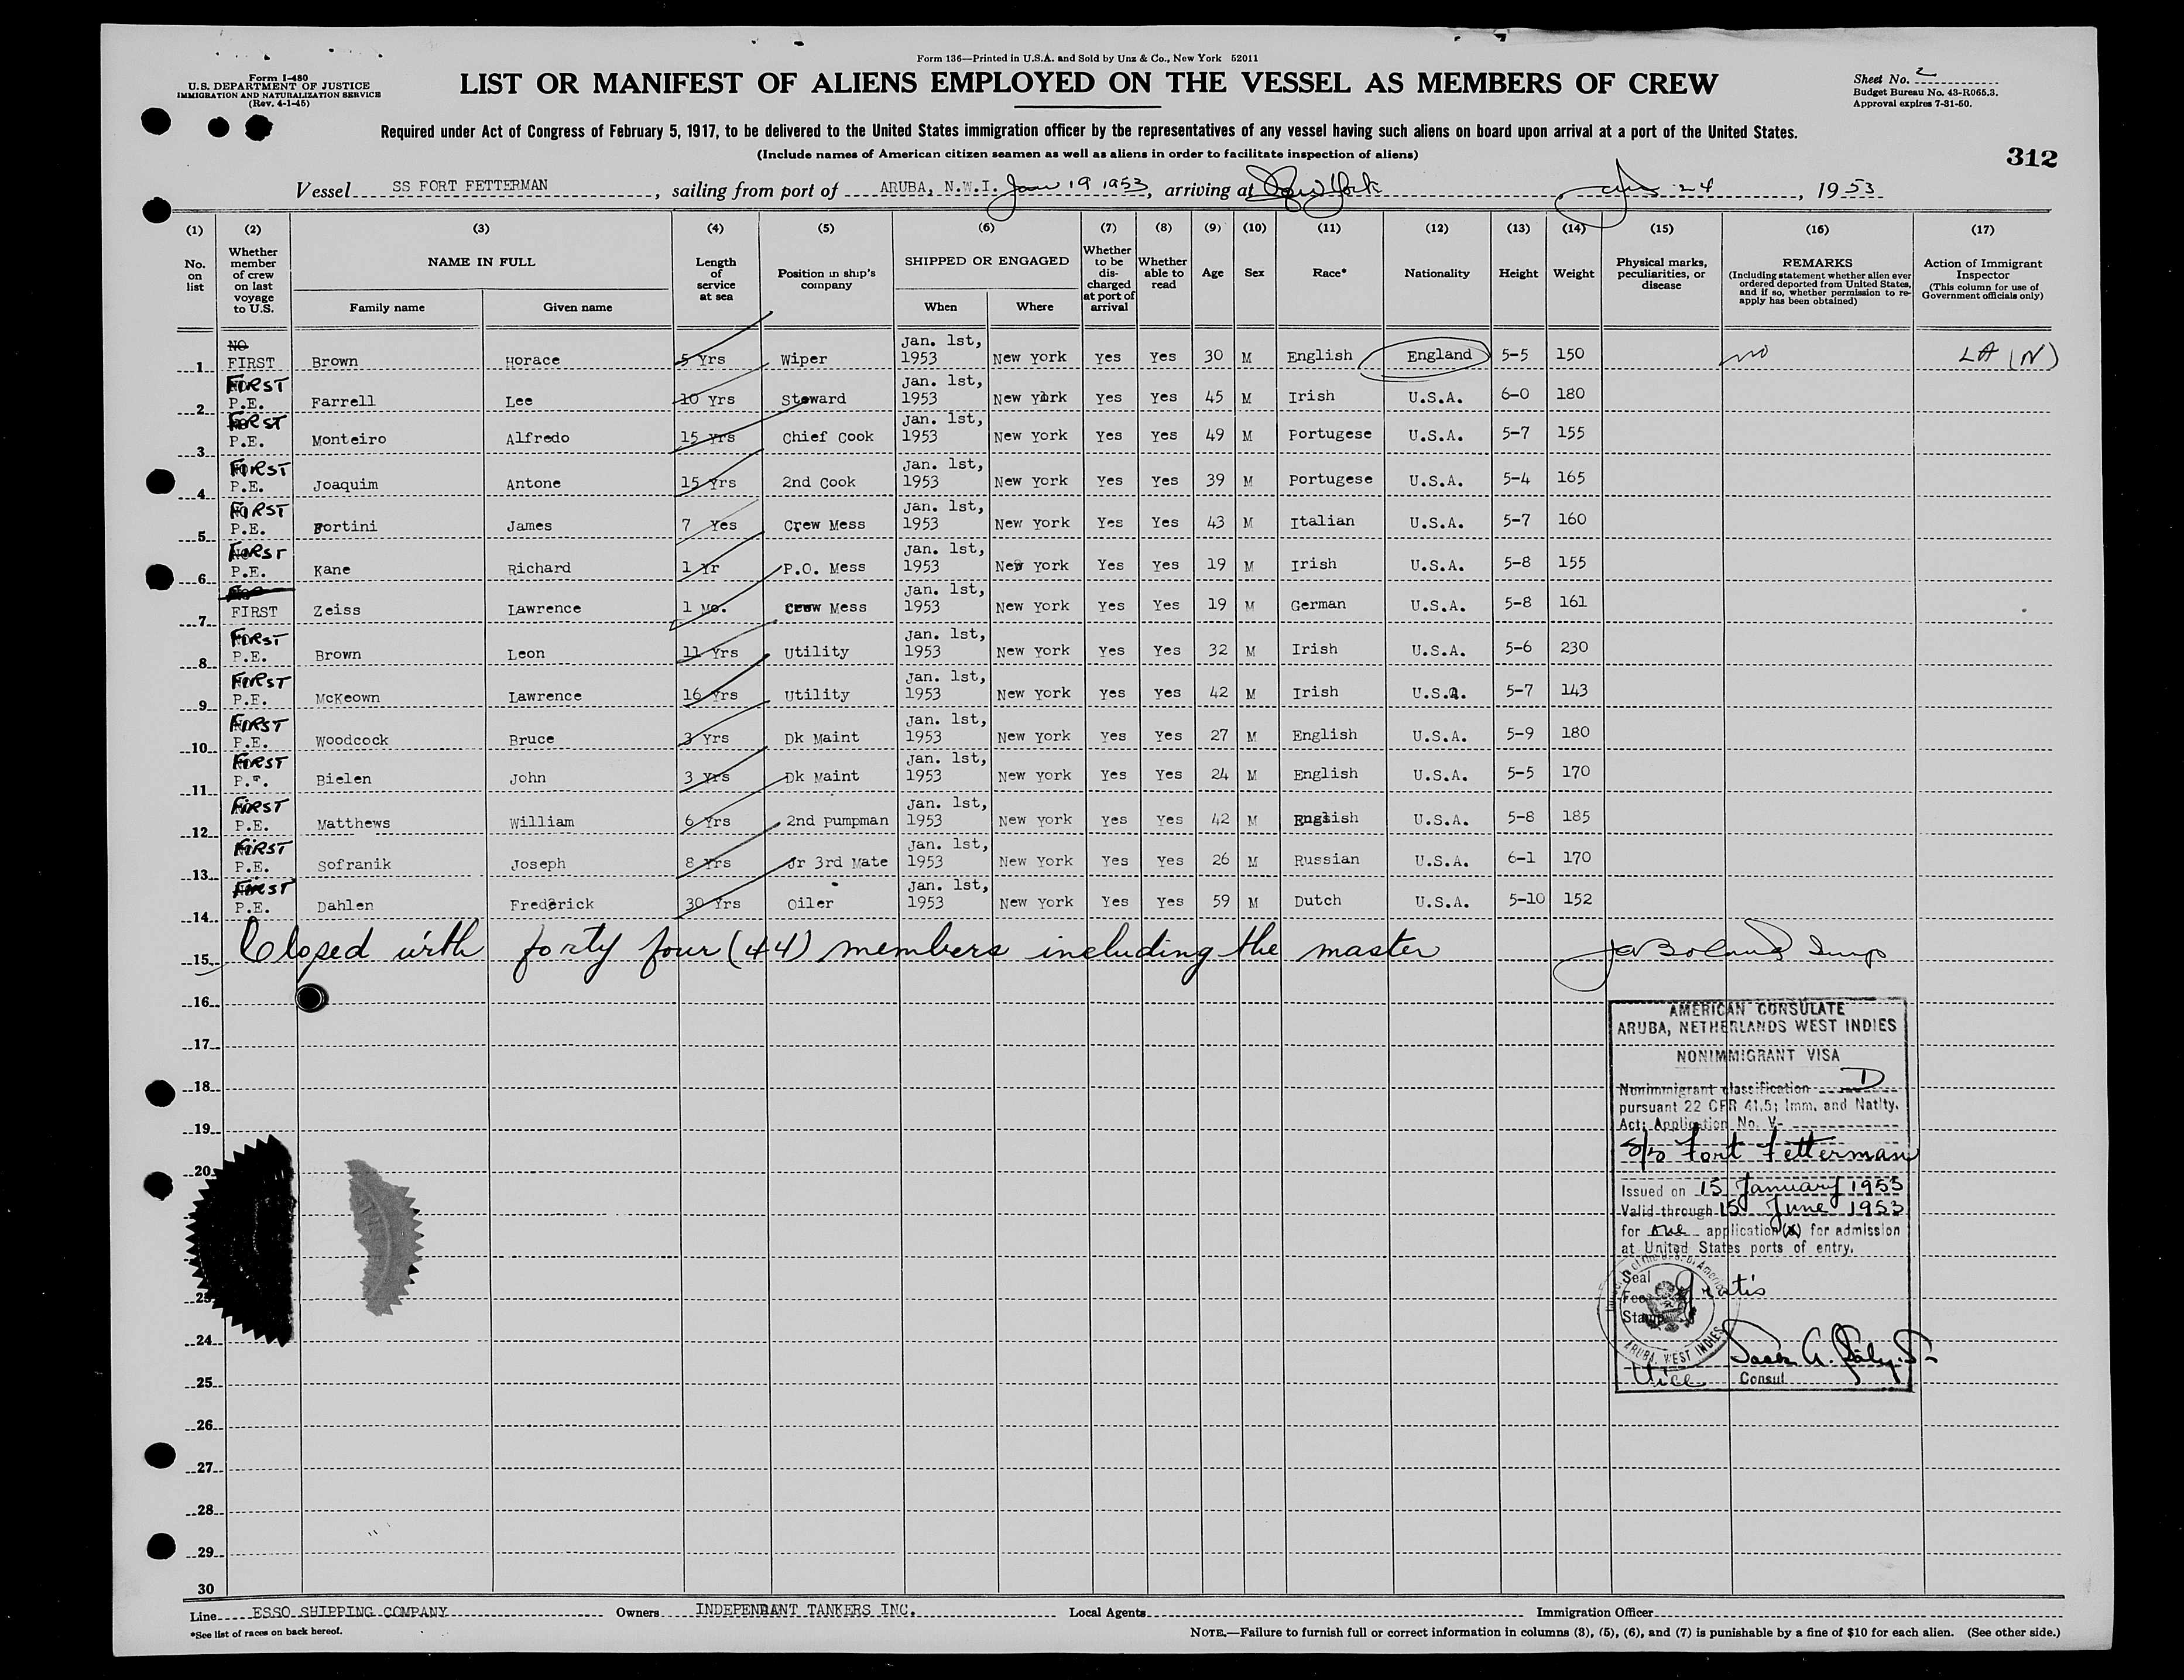 Form 136—Printed in U.S.A. and Sold by Unz & Co., New York 52011
Form I-480
U.S. DEPARTMENT OF JUSTICE
IMMIGRATION AND NATURALIZATION SERVICE
(Rev. 4-1-45)
LIST OR MANIFEST OF ALIENS EMPLOYED ON THE VESSEL AS MEMBERS OF CREW
Sheet No. 2
Budget Bureau No. 43-R065.3.
Approval expires 7-31-50.
Required under Act of Congress of February 5, 1917, to be delivered to the United States immigration officer by the representatives of any vessel having such aliens on board upon arrival at a port of the United States.
(Include names of American citizen seamen as well as aliens in order to facilitate inspection of aliens)
312
Vessel SS FORT FETTERMAN, sailing from port of ARUBA, N.W.I. Jan 19 1953, arriving at New York 24, 1953
(1) (2) (3) (4) (5) (6) (7) (8) (9) (10) (11) (12) (13) (14) (15) (16) (17)
No. on list
Whether member of crew on last voyage to U.S.
NAME IN FULL
Family name
Given name
Length of service at sea
Position in ship's company
SHIPPED OR ENGAGED
When
Where
Whether to be discharged at port of arrival
Whether able to read
Age
Sex
Race*
Nationality
Height
Weight
Physical marks, peculiarities, or disease
REMARKS
(Including statement whether alien ever ordered deported from United States, and if so, whether permission to reapply has been obtained)
Action of Immigrant Inspector
(This column for use of Government officials only)
1 NO FIRST Brown Horace 5 Yrs Wiper Jan. 1st, 1953 New York Yes Yes 30 M English England 5-5 150 no LA (N)
2 FIRST P.E. Farrell Lee 10 Yrs Steward Jan. 1st, 1953 New York Yes Yes 45 M Irish U.S.A. 6-0 180
3 FIRST P.E. Monteiro Alfredo 15 Yrs Chief Cook Jan. 1st, 1953 New York Yes Yes 49 M Portugese U.S.A. 5-7 155
4 FIRST P.E. Joaquim Antone 15 Yrs 2nd Cook Jan. 1st, 1953 New York Yes Yes 39 M Portugese U.S.A. 5-4 165
5 FIRST P.E. Fortini James 7 Yes Crew Mess Jan. 1st, 1953 New York Yes Yes 43 M Italian U.S.A. 5-7 160
6 FIRST P.E. Kane Richard 1 Yr P.O. Mess Jan. 1st, 1953 New York Yes Yes 19 M Irish U.S.A. 5-8 155
7 FIRST Zeiss Lawrence 1 Mo. Crew Mess Jan. 1st, 1953 New York Yes Yes 19 M German U.S.A. 5-8 161
8 FIRST P.E. Brown Leon 11 Yrs Utility Jan. 1st, 1953 New York Yes Yes 32 M Irish U.S.A. 5-6 230
9 FIRST P.E. McKeown Lawrence 16 Yrs Utility Jan. 1st, 1953 New York Yes Yes 42 M Irish U.S.A. 5-7 143
10 FIRST P.E. Woodcock Bruce 3 Yrs Dk Maint Jan. 1st, 1953 New York Yes Yes 27 M English U.S.A. 5-9 180
11 FIRST P.E. Bielen John 3 Yrs Dk Maint Jan. 1st, 1953 New York Yes Yes 24 M English U.S.A. 5-5 170
12 FIRST P.E. Matthews William 6 Yrs 2nd Pumpman Jan. 1st, 1953 New York Yes Yes 42 M English U.S.A. 5-8 185
13 FIRST P.E. Sofranik Joseph 8 Yrs Jr 3rd Mate Jan. 1st, 1953 New York Yes Yes 26 M Russian U.S.A. 6-1 170
14 FIRST P.E. Dahlen Frederick 30 Yrs Oiler Jan. 1st, 1953 New York Yes Yes 59 M Dutch U.S.A. 5-10 152
15 Closed with forty four (44) members including the master
16
17
18
19
20
23
24
25
26
27
28
29
30
AMERICAN CONSULATE
ARUBA, NETHERLANDS WEST INDIES
NONIMMIGRANT VISA
Nonimmigrant classification D
pursuant 22 CFR 41.5; Imm. and Natlty.
Act; Application No. V-
S/S Fort Fetterman
Issued on 15 January 1953
Valid through 15 June 1953
for one application(s) for admission
at United States ports of entry.
Seal
Fee gratis
Stamp
ARUBA, WEST INDIES
Vice Consul
Line ESSO SHIPPING COMPANY Owners INDEPENDANT TANKERS INC. Local Agents Immigration Officer
*See list of races on back hereof.
NOTE.—Failure to furnish full or correct information in columns (3), (5), (6), and (7) is punishable by a fine of $10 for each alien. (See other side.)